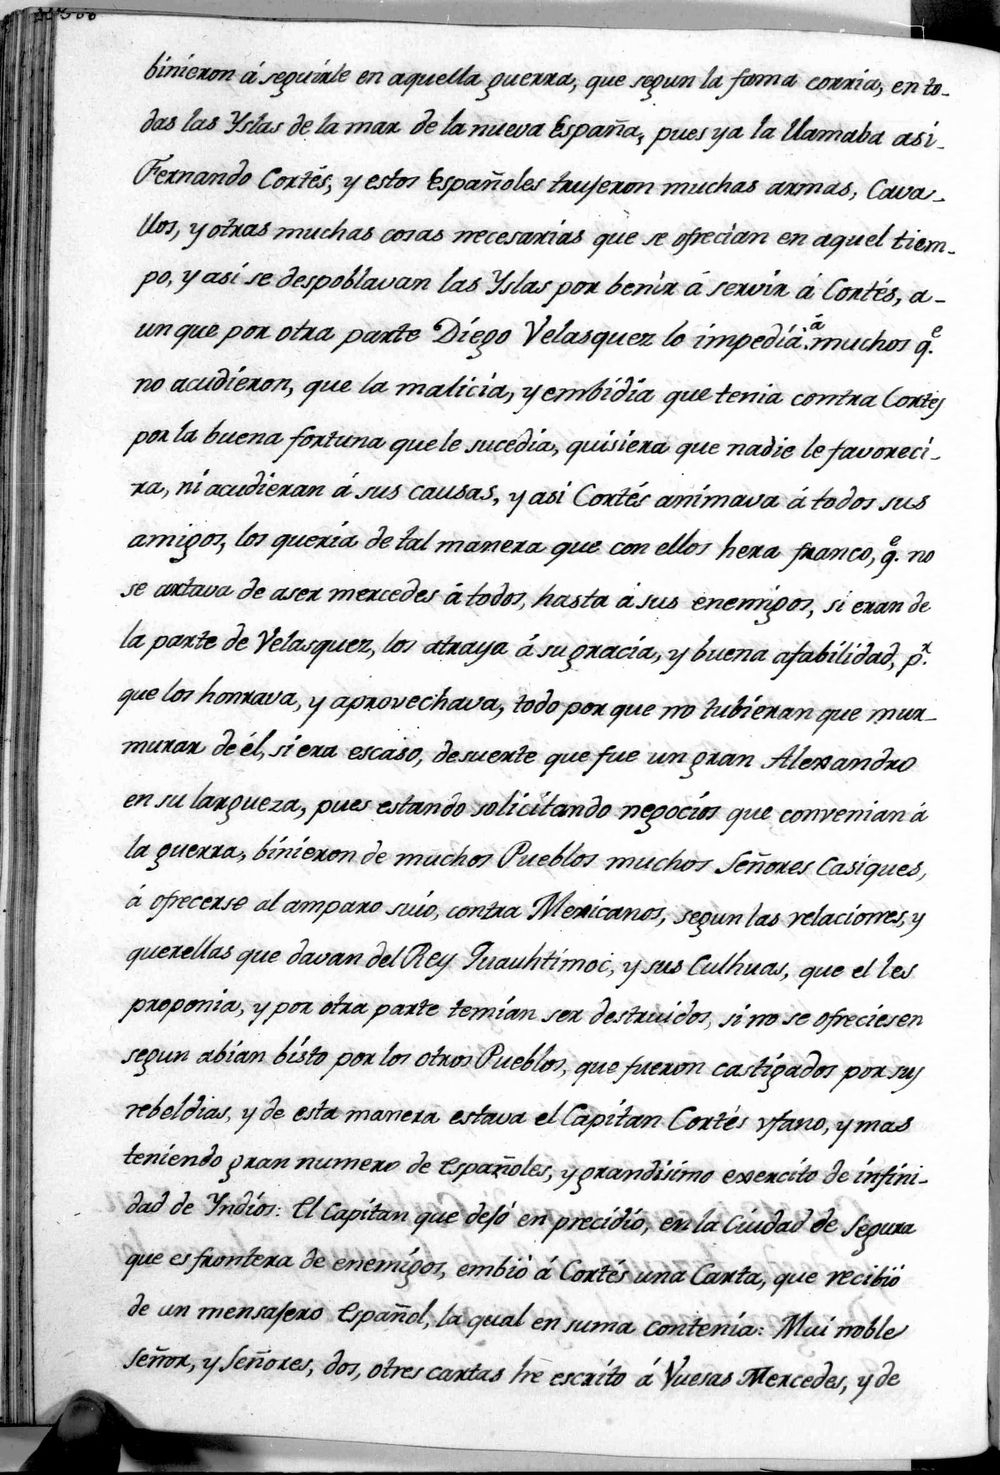 binieron á seguirle en aquella guerra, que segun la fama corria, en to-
das las Yslas de la mar de la nueva España, pues ya la llamaba asi-
Fernando Cortés, y estos Españoles trujeron muchas armas, Cava-
llos, y otras muchas cosas necesarias que se ofrecian en aquel tiem-
po, y asi se despoblavan las Yslas por benir á servir á Cortés, a-
unque por otra parte Diego Velasquez lo impedía á muchos q.e
no acudieron, que la malicia, y embidia que tenia contra Cortés
por la buena fortuna que le sucedia, quisiera que nadie le favoreci-
ra, ni acudieran á sus causas, y asi Cortés animava á todos sus
amigos, los quería de tal manera que con ellos hera franco, q.e no
se artava de aser mercedes á todos, hasta á sus enemigos, si eran de
la parte de Velasquez, los atraya á su gracia, y buena afabilidad, p.r
que los honrava, y aprovechava, todo por que no tubieran que mur-
murar de él, si era escaso, de suerte que fue un gran Alexandro
en su largueza, pues estando solicitando negocios que convenian á
la guerra, binieron de muchos Pueblos muchos Señores Casiques,
á ofrecerse al amparo suio, contra Mexicanos, segun las relaciones, y
querellas que davan del Rey Quauhtimoc, y sus Culhuas, que el les
proponia, y por otra parte temían ser destruidos, si no se ofreciesen
segun abian bisto por los otros Pueblos, que fueron castigados por sus
rebeldias, y de esta manera estava el Capitan Cortés vfano, y mas
teniendo gran numero de Españoles, y grandisimo exercito de infini-
dad de Yndios: El Capitan que dejó en precidio, en la Ciudad de Segura
que es frontera de enemigos, embió á Cortés una Carta, que recibió
de un mensajero Español, la qual en suma contenia: Mui noble
Señor, y Señores, dos, otres cartas he escrito á Vuesas Mercedes, y de